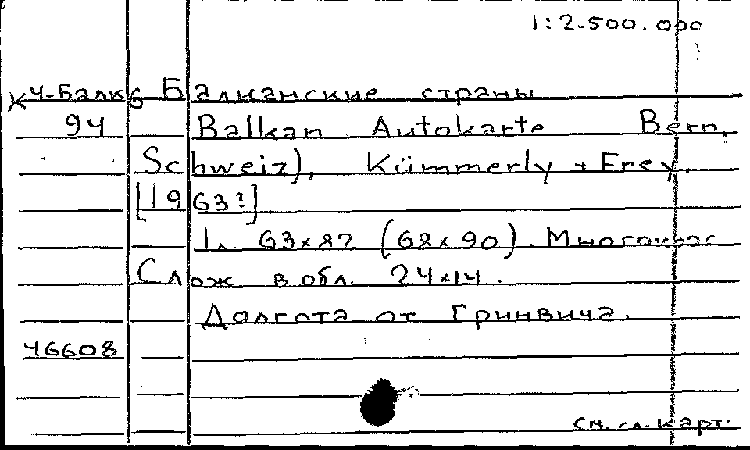 1:2.500.000
К4-Балк6 Балканские страны
94 Balkan Autokarte Bern,
Schweiz), Kümmerly + Frey.
[1963?]
1л. 63×87 (68×90). Многокрас
Слож в обл. 24×14.
Долгота от Гринвича.
46608
см. сл. карт.